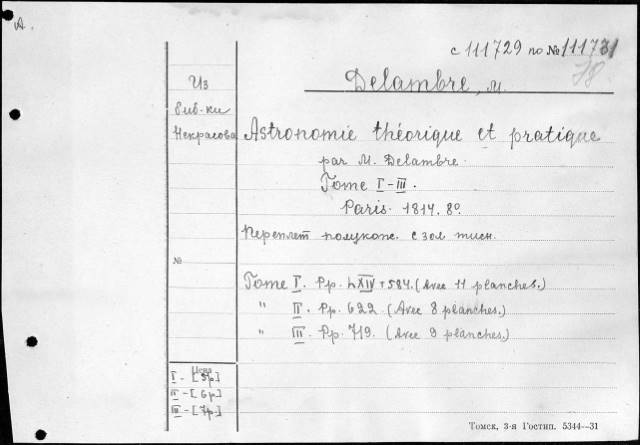 А.
с 111729 по № 111731
78.
Delambre, M.
Из
биб-ки
Некрасова
Astronomie théorique et pratique
par M. Delambre.
Tome I-III.
Paris. 1814. 8º.
Переплет полукож. с зол. тисн.
№
Tome I. Pp. LXIV + 584. (Avec 11 planches.)
" II. Pp. 622. (Avec 8 planches.)
" III. Pp. 719. (Avec 9 planches.)
Цена
I - [5р]
II - [6р]
III - [7р]
Томск, 3-я Гостип. 5344—31